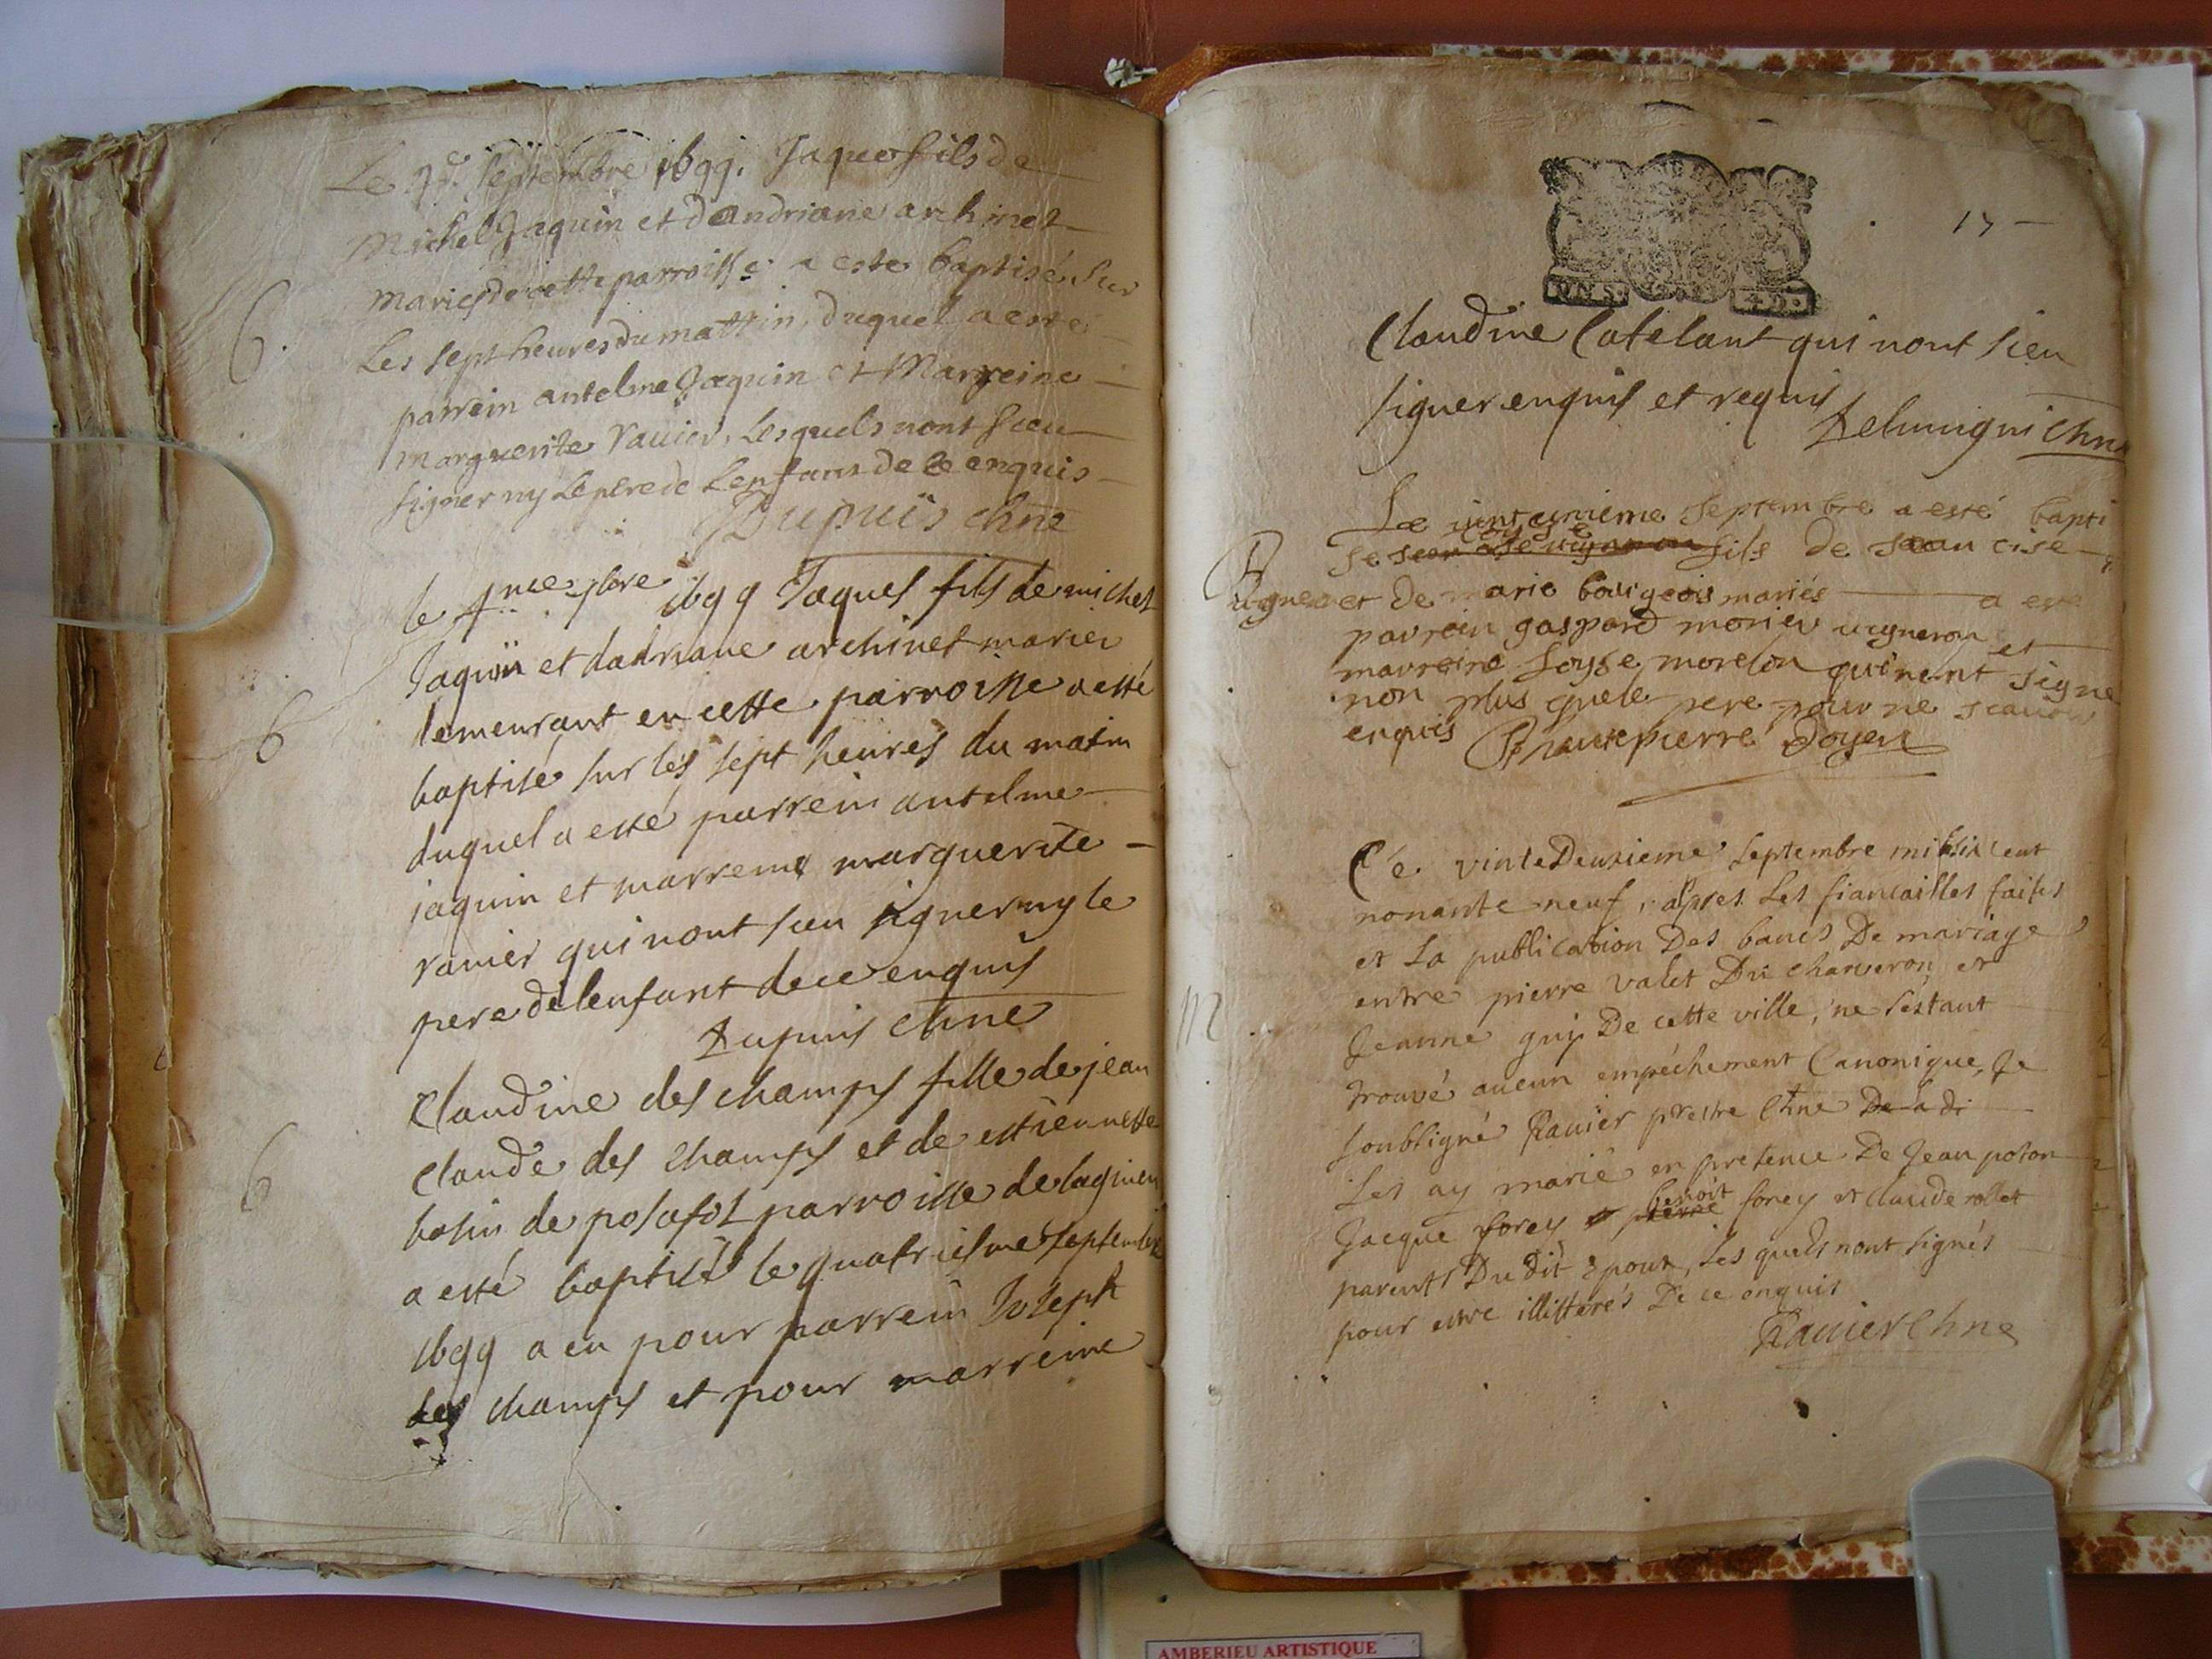 Le septembre 1699. Jaques fils de
Michel Jaquin et dandriane archinet
mariés de cette parroisse a esté baptisé Sur
Les sept heures du mattin, duquel a esté
6.
parrein antelme Jaquin et Marreine
marguerite ravier, Lesquels nont sceu
signer ny Le pere de Lenfant de ce enquis
Dupuïs chne
le 4 7bre 1699 Jaques fils de michel
Jaquin et dadriane archinet mariez
demeurant en cette parroisse a esté
6
baptisé sur les sept heures du matin
duquel a esté parrein antelme
jaquin et marreine marguerite
ravier qui nont sceu signer ny le
pere de lenfant de ce enquis
Dupuis chne
Claudine des champs fille de jean
Claude des champs et de estiennette
6
bosin de posafol parroisse de lagnieu
a esté baptisé le quatriesme septembre
1699 a eu pour parrein Joseph
des champs et pour marreine
Claudine Catelant qui nont sceu
signer enquis et requis
chne
Le vint unieme Septembre a esté bapti
sé fils de Jean cise
B
vigneron et de marie bourgeois mariés a esté
parrein gaspard morier vigneron et
marreine morelon qui nont signé
non plus que le pere pour ne scavoir
enquis Chantepierre Doyen
Ce vinte Deuxieme Septembre mil six cent
nonante neuf, apres Les fiancailles faites
et La publication Des bancs De mariage
entre pierre valet Du chanveron et
M
Jeanne guy De cette ville, ne sestant
trouvé aucun empéchement Canonique, Je
soubsigné Ravier prestre Chne De a di
Les ay marié en presence De Jean poton
Jacque forey et pierre benoit forey et claude rollet
parents Du dit Epoux, Les quels nont signés
pour estre illitterés De ce enquis
Ravier Chne
AMBERIEU ARTISTIQUE